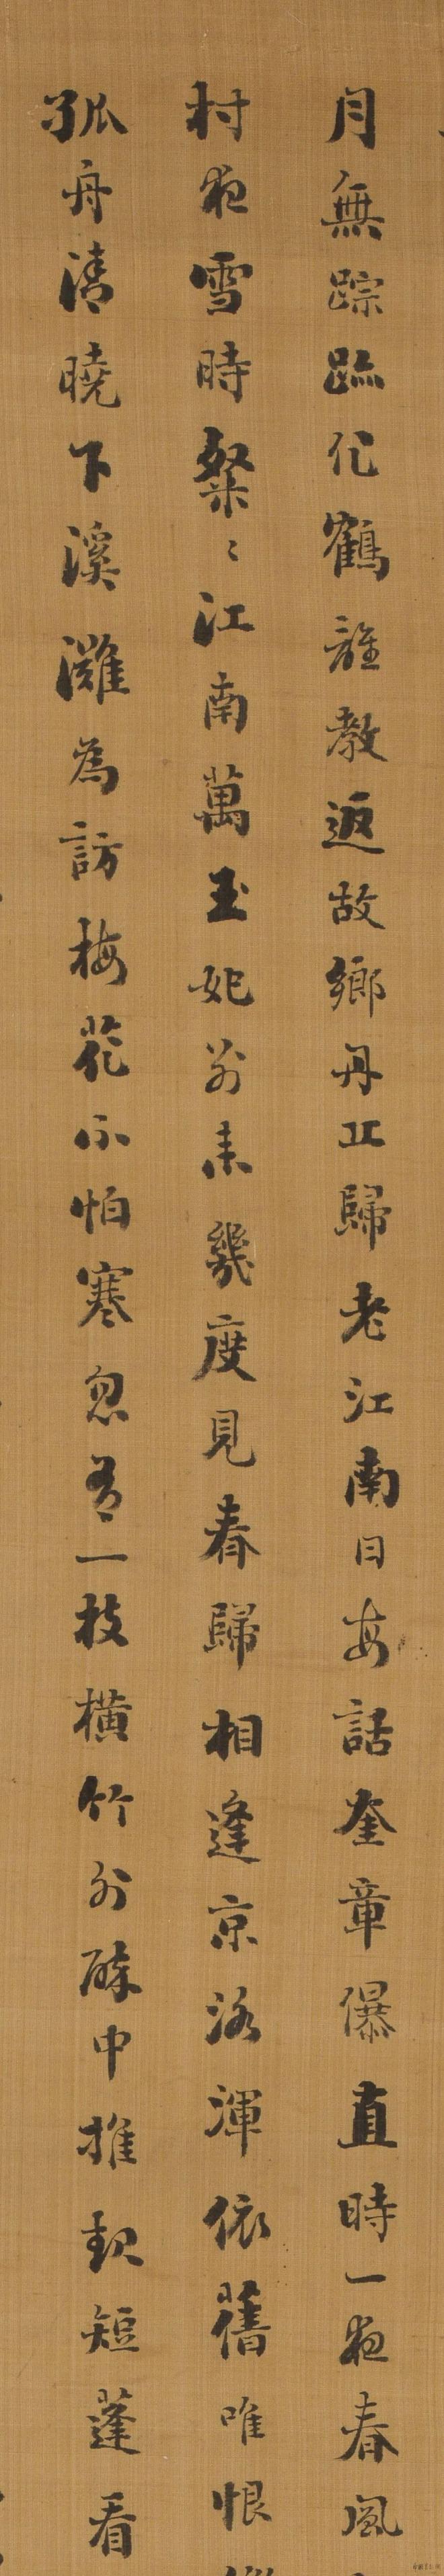 月無踪跡化鶴誰教返故鄉丹丘歸老江南日每話奎章儤直時一夜春風
村夜雪時粲〻江南萬玉妃別來幾度見春歸相逢京洛渾依舊唯恨
孤舟清曉下溪灘為訪梅花不怕寒忽有一枝橫竹外醉中推起短蓬看